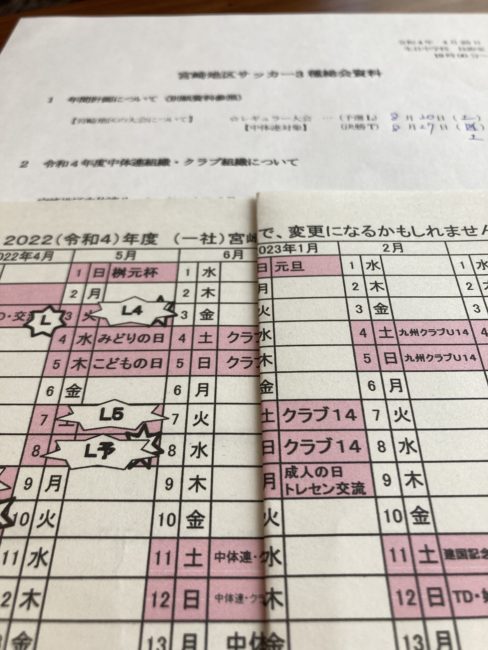 宮崎地区サッカー3種総会資料
1 年間計画について (別紙資料参照)
【宮崎地区の大会について】 ☆レギュラー大会 … (予選L) 8月20日(土)
【中体連対象】 (決勝T) 8月27日(
土
2 令和4年度中体連組織・クラブ組織について
2022(令和4)年度 (一社)宮崎
022年4月 5月 6月
1 日 桝元杯 1 水
2 月 2 木
L 3 火 L4 3 金
4 水 みどりの日 4 土 クラブ
5 木 こどもの日 5 日 クラブ
6 金 6 月
7 L5 7 火
8 L予 8 水
9 月 9 木
10 火 10 金
11 水 11 土 中体連・ク
2 木 12 日 中体連・クラ
金 13 月 中体
で、変更になるかもしれません
023年1月 2月
日 元旦 1 水
月 2 木
火 3 金
水 4 土 九州クラブU14
木 5 日 九州クラブU14
金 6 月
土 クラブ14 7 火
日 クラブ14 8 水
月 成人の日
トレセン交流 9 木
火 10 金
水 11 土 建国記念
木 12 日 TD・
金 13 月